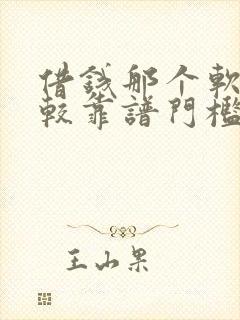 借錢那个軟
較靠譜門檻
王山果